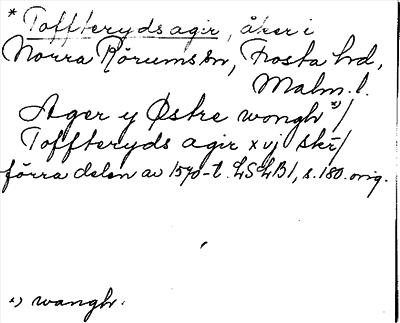 * Toffteryds agir, åker i
Norra Rörums sn, Frosta hd,
Malm. l.
Ager y Østre wongh ¹⁾/
Toffteryds agir x vj skr/
förra delen av 1570-t. LSLB 1, s. 180. orig.
¹⁾ wangh.